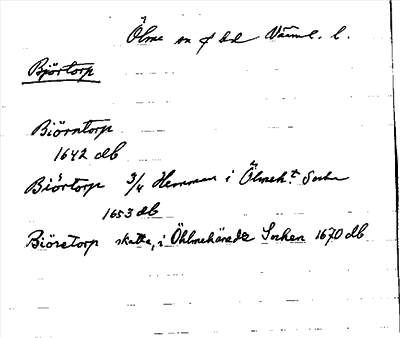 Ölme sn o hd Värml. l.
Björtorp
Biörntorp
1642 db
Biörtorp 3/4 Hemman i Ölmeh:t Sochn
1653 db
Biöretorp skatte, i Öhlmehärade Sochen 1670 db